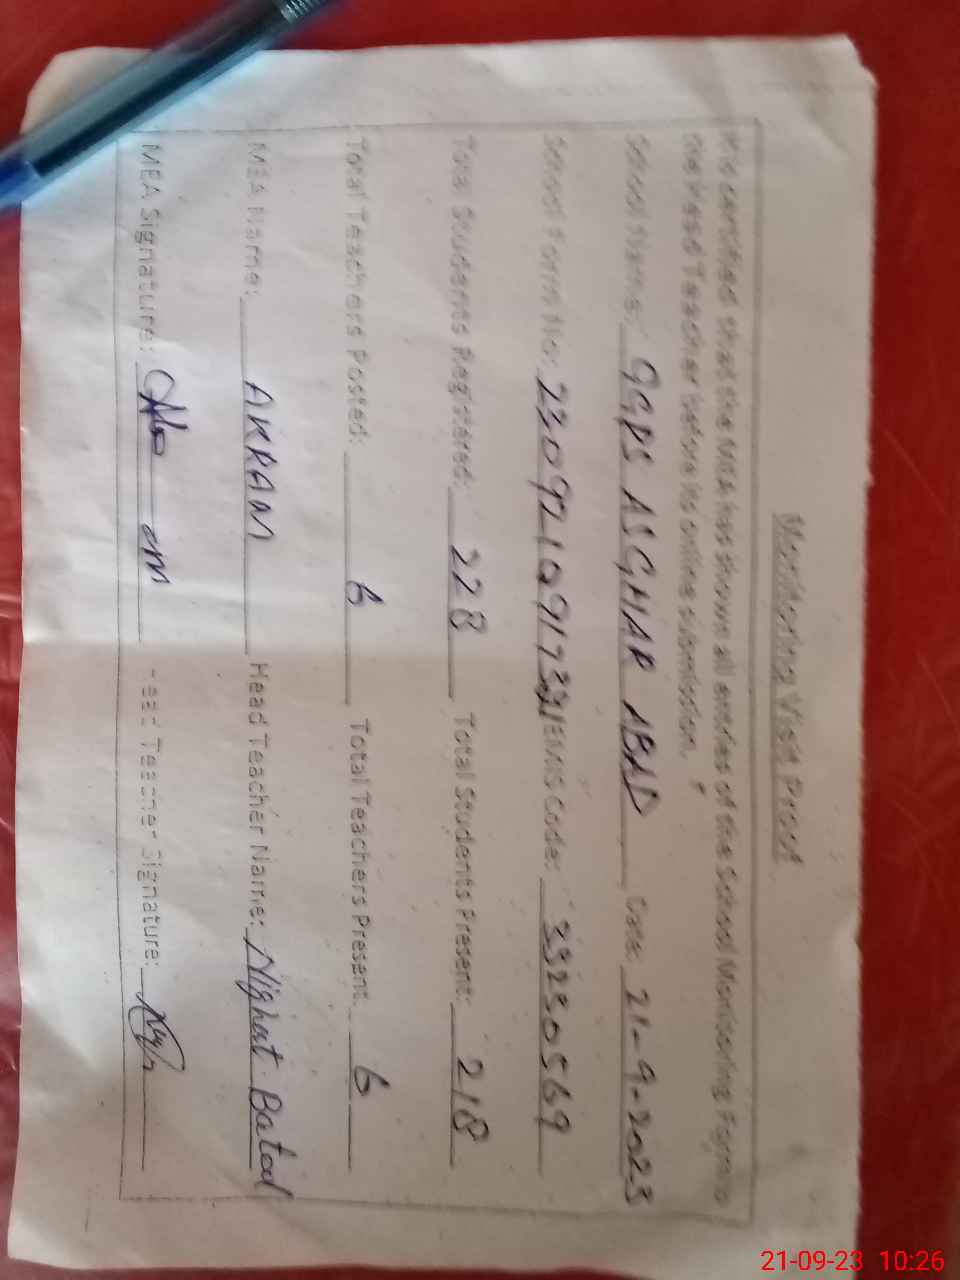 Monitoring Visit Proof
It is certified that the MEA has shown all entries of the School Monitoring Form to
the Head Teacher before its online submission.
School Name: GGPS ASGHAR ABAD Date: 21-9-2023
School Form No: EMIS Code: 33230569
Total Students Registered: 228 Total Students Present: 218
Total Teachers Posted: 6 Total Teachers Present: 6
MEA Name: AKRAM Head Teacher Name: Nighat Batool
MEA Signature: Head Teacher Signature:
21-09-23 10:26